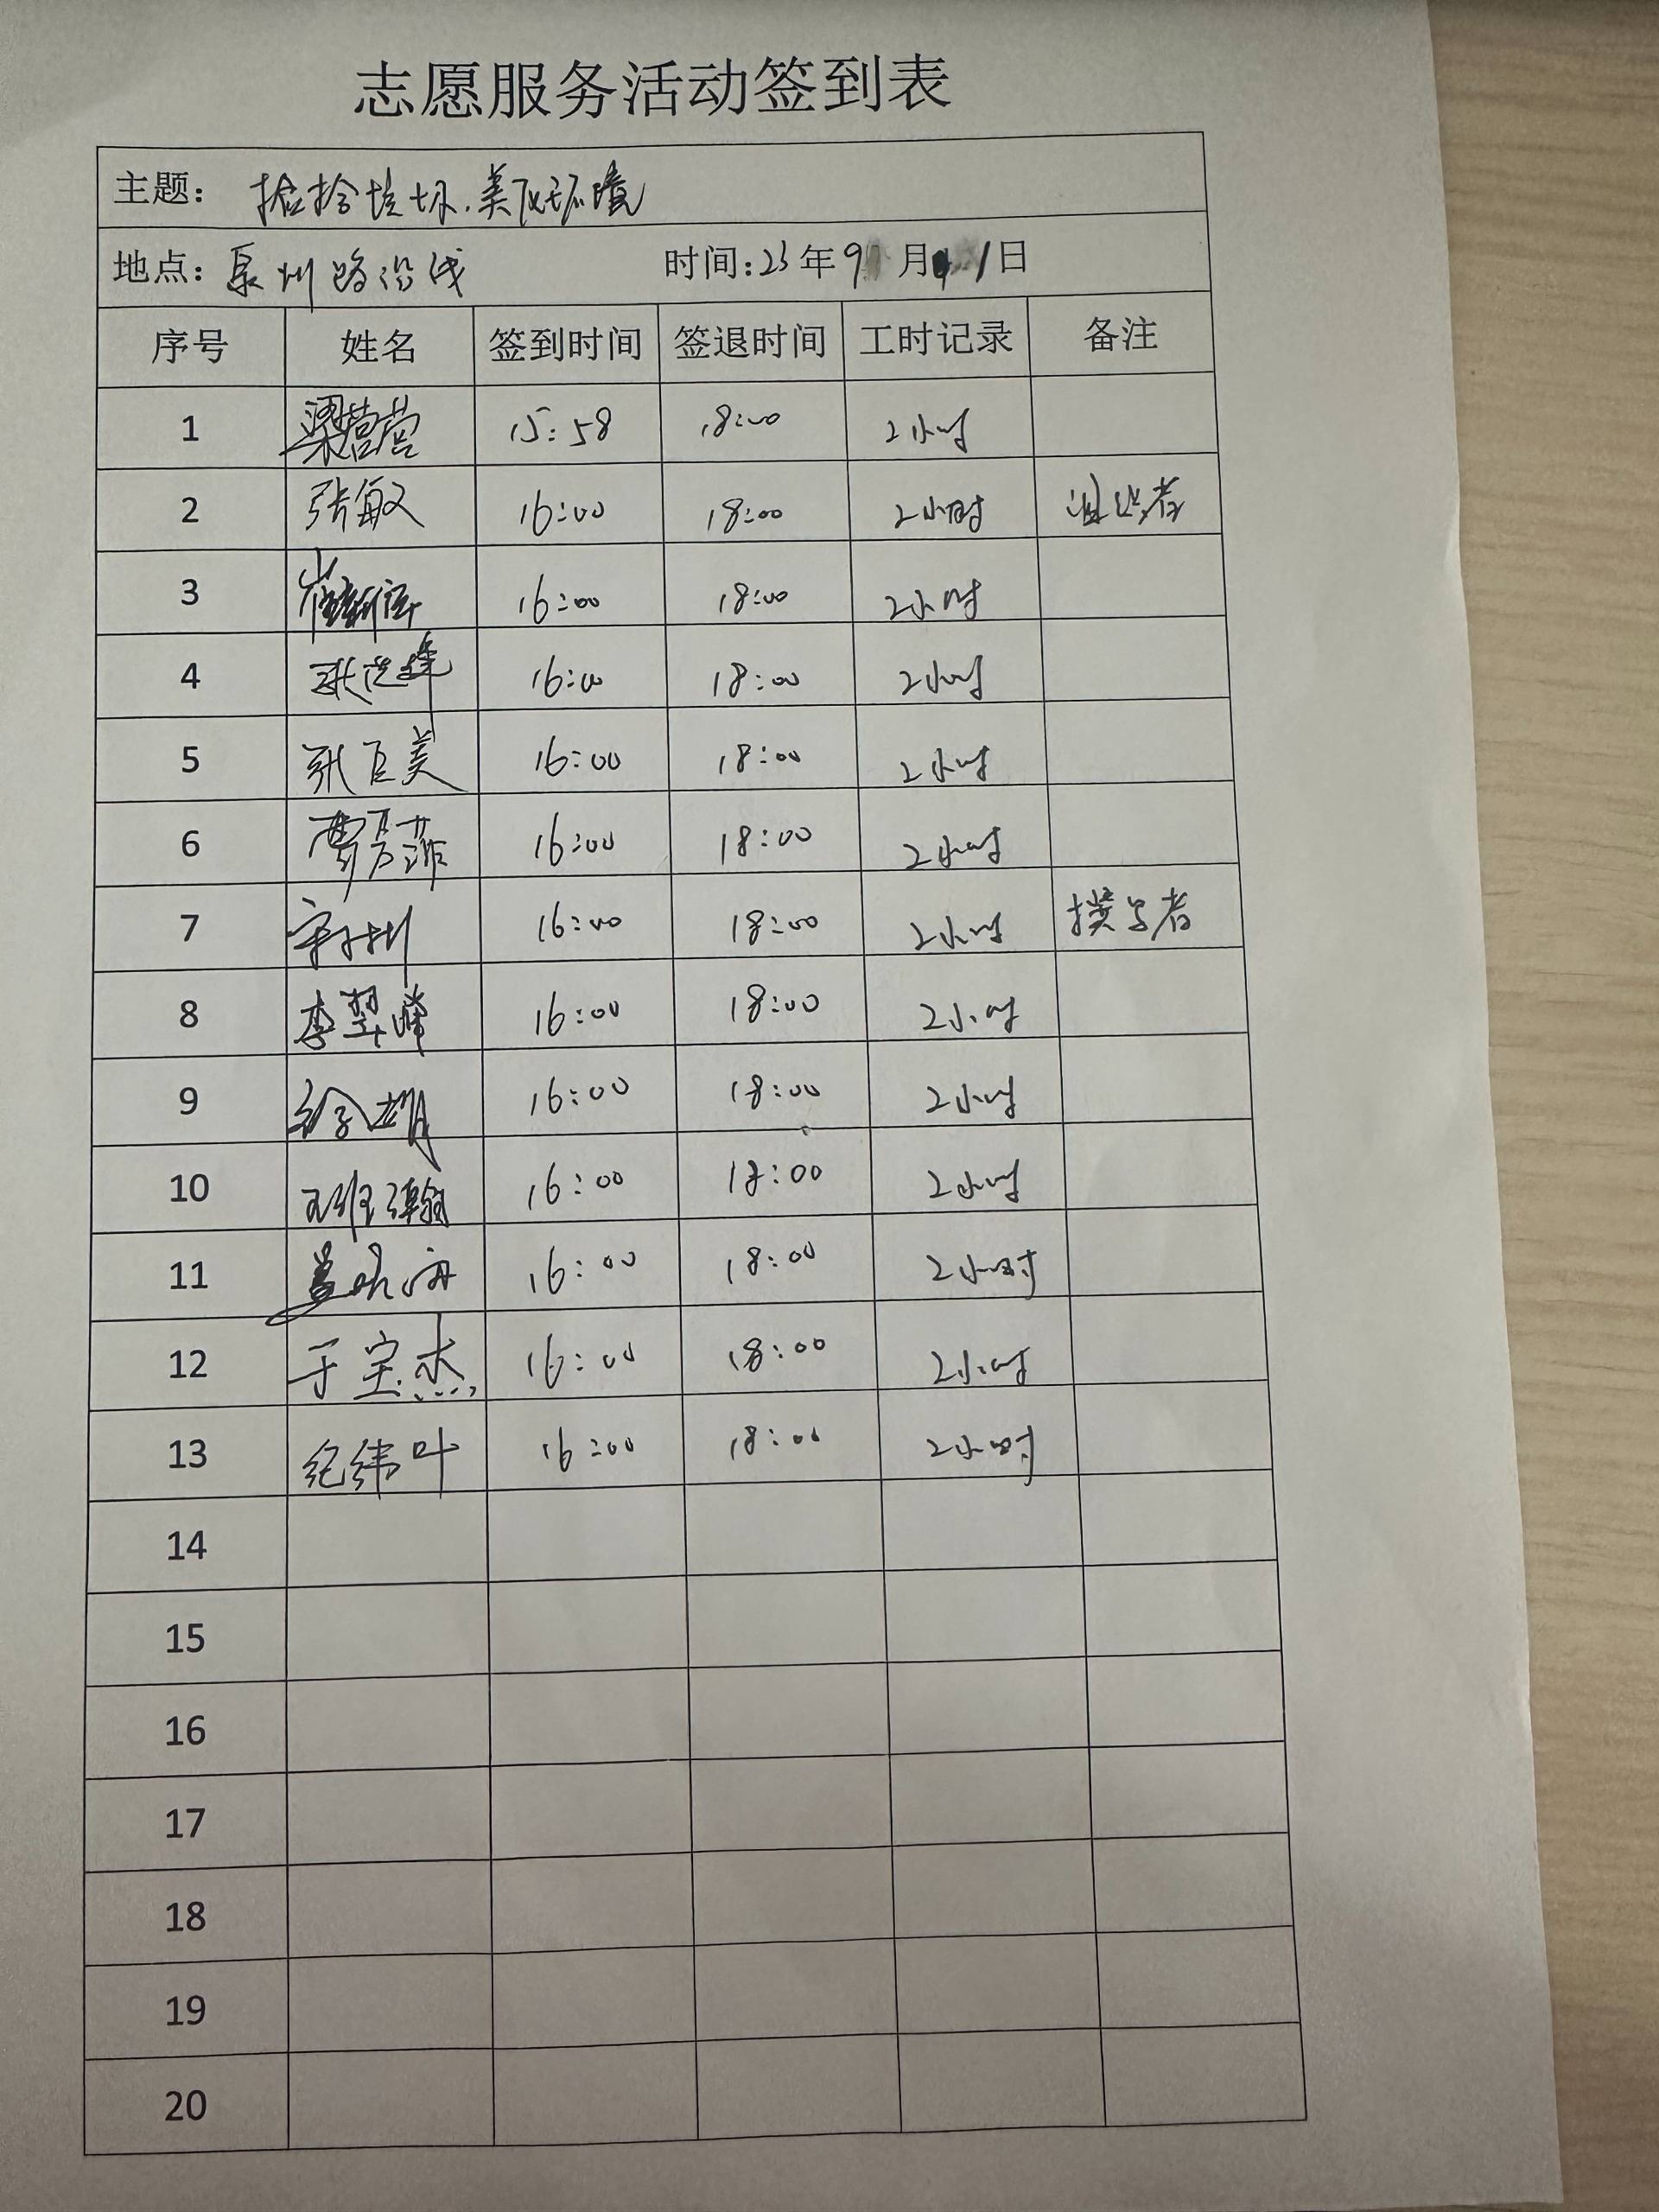 志愿服务活动签到表
主题： 捡拾垃圾.美化环境
地点：泉州路沿线 时间:23年9月1日
序号 姓名 签到时间 签退时间 工时记录 备注
1 梁营营 15:58 18:00 2小时
2 张敏 16:00 18:00 2小时 组织者
3 16:00 18:00 2小时
4 16:00 18:00 2小时
5 张巨美 16:00 18:00 2小时
6 16:00 18:00 2小时
7 16:00 18:00 2小时 撰写者
8 李翠峰 16:00 18:00 2小时
9 16:00 18:00 2小时
10 16:00 18:00 2小时
11 16:00 18:00 2小时
12 于宝杰 16:00 18:00 2小时
13 纪纬叶 16:00 18:00 2小时
14
15
16
17
18
19
20